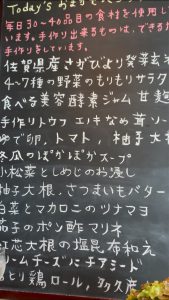 Today's おまか
毎日30〜40品目の食材を使用し
います。手作り出来るものは、できるだ
手作りをしています。
佐賀県産さがびより発芽玄
4〜7種の野菜のもりもりサラダ
食べる美容酵素ジャム 甘麹
手作りトウフ エリンギ なめ茸 ソー
ゆで卵, トマト, 柚子大
冬瓜のぽかぽかスープ
小松菜としめじのお浸し
柚子大根、さつまいもバター
白菜とマカロニのツナマヨ
茄子のポン酢マリネ
紅芯大根の塩昆布和え
ームチーズにチアシード
とり鶏ロール, 多久産